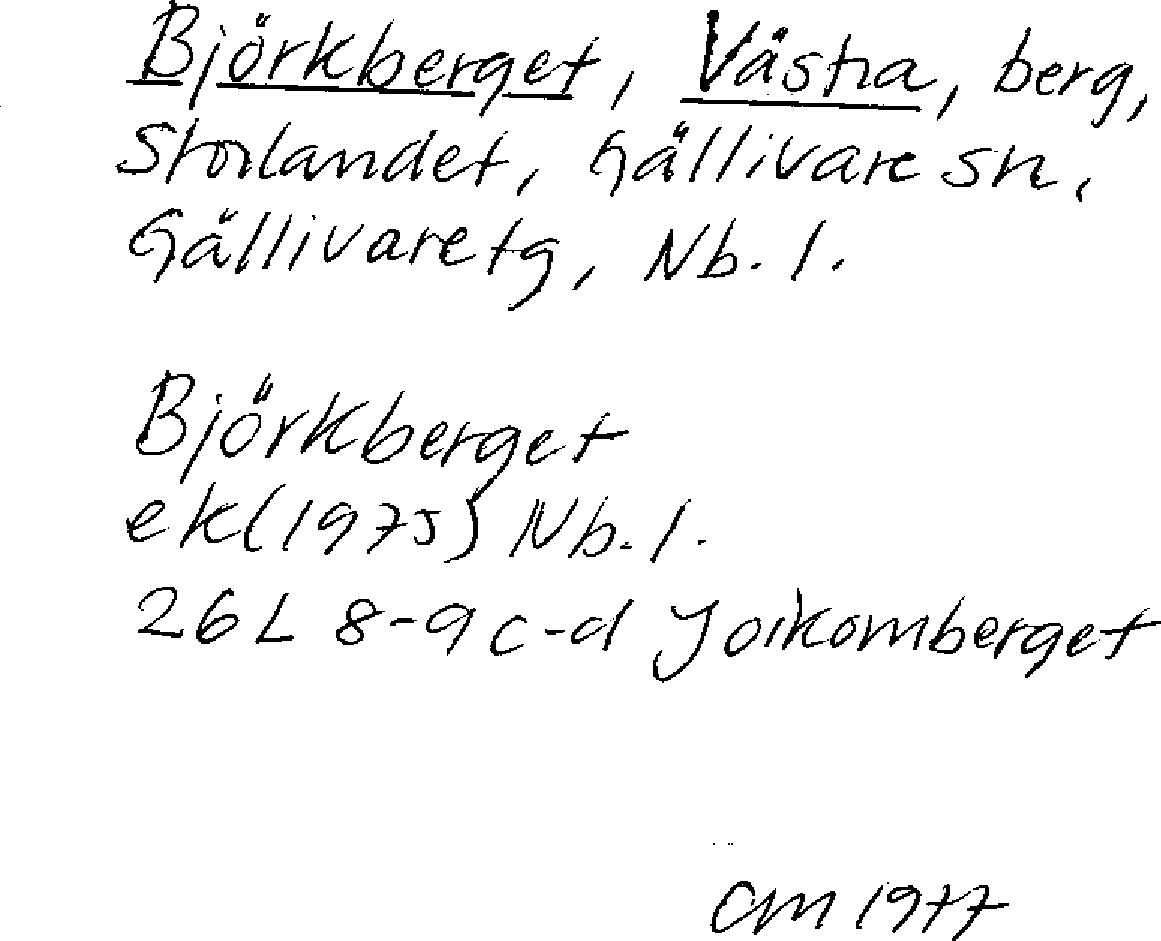 Björkberget, Västra, berg,
Storlandet, Gällivare sn,
Gällivare tg, Nb. l.
Björkberget
ek (1975) Nb. l.
26L 8-9 c-d Joikomberget
CM 1977